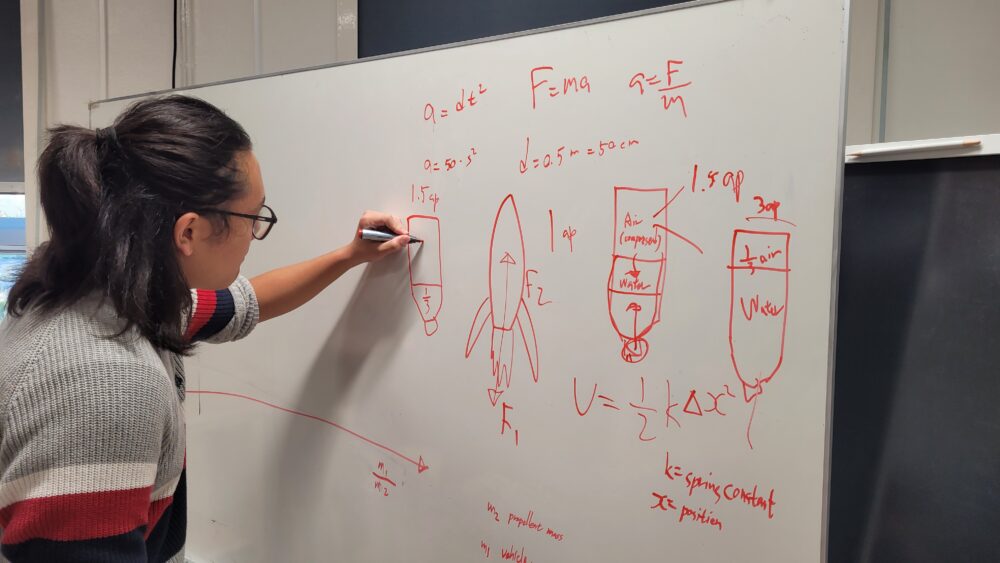 a = dt²
F = ma
a = F/m
a = 50 · s²
d = 0.5 m = 50 cm
1.5 ap
1/3
F₂
F₁
1 ap
1.5 ap
Air
(compressed)
Water
3 ap
1/3 air
Water
U = 1/2 k Δx²
k = spring constant
x = position
m₁/m₂
m₂ propellent mass
m₁ vehicle